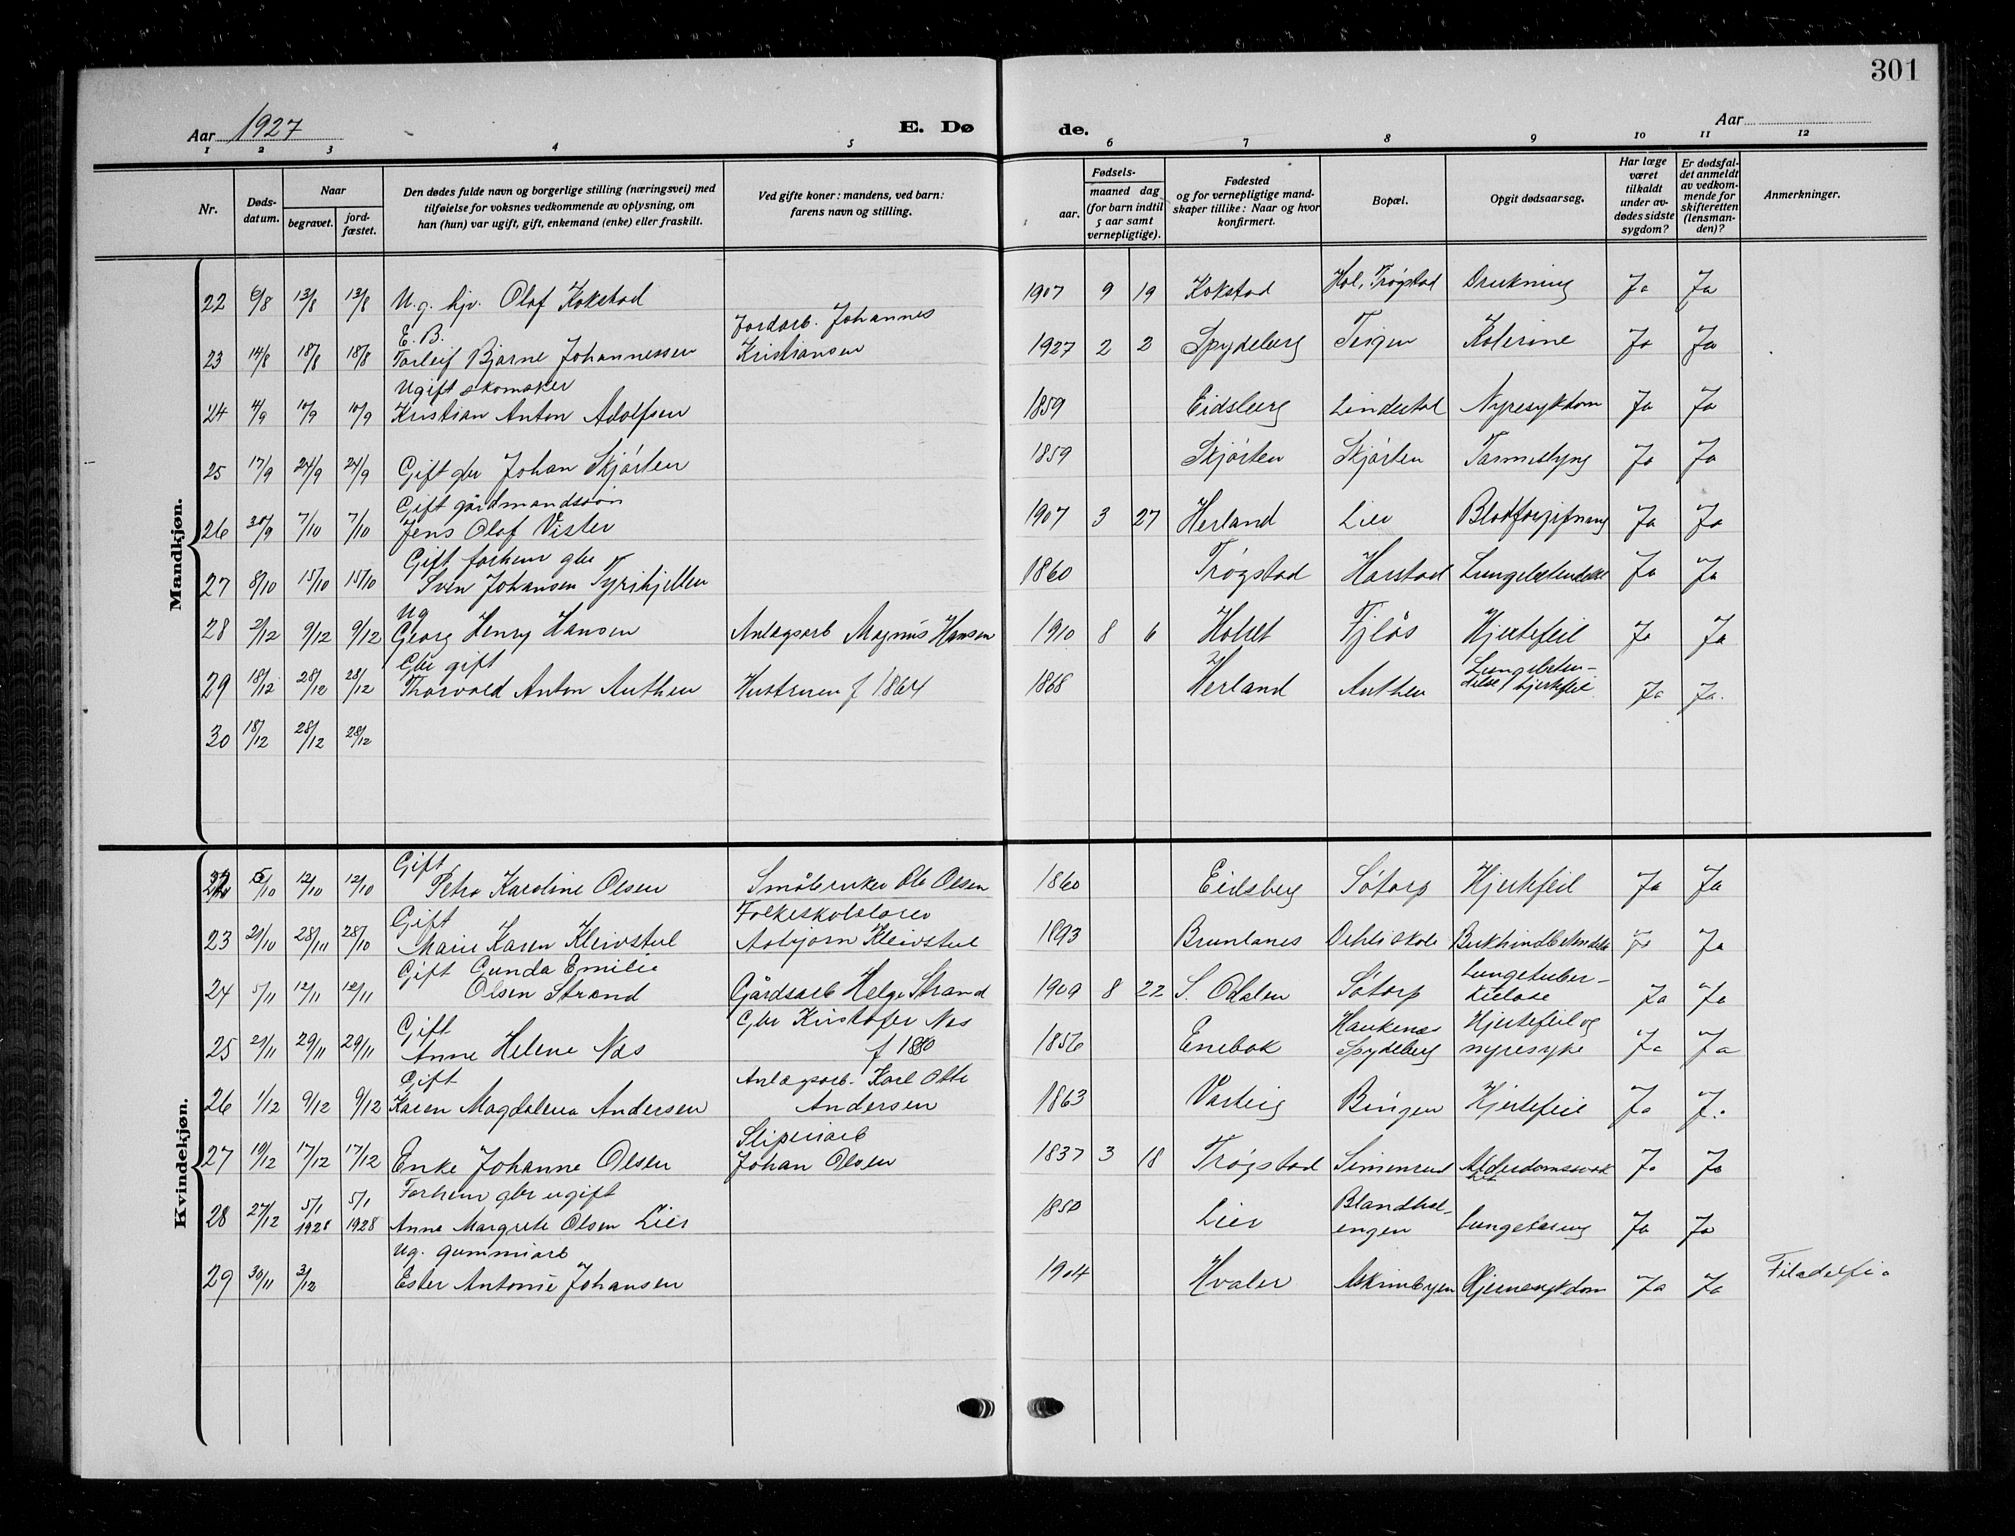 301
Aar 1927
E. Dø
de.
Aar
1 2 3 4 5 6 7 8 9 10 11 12
Nr.
Døds-
datum.
Naar
begravet.
jord-
fæstet.
Den dødes fulde navn og borgerlige stilling (næringsvei) med
tilføielse for voksnes vedkommende av oplysning, om
han (hun) var ugift, gift, enkemand (enke) eller fraskilt.
Ved gifte koner: mandens, ved barn:
farens navn og stilling.
Fødsels-
aar.
maaned dag
(for barn indtil
5 aar samt
vernepligtige).
Fødested
og for vernepligtige mand-
skaper tillike: Naar og hvor
konfirmert.
Bopæl.
Opgit dødsaarsag.
Har læge
været
tilkaldt
under av-
dødes sidste
sygdom?
Er dødsfal-
det anmeldt
av vedkom-
mende for
skifteretten
(lensman-
den)?
Anmerkninger.
Mandkjøn.
22 6/8 13/8 13/8 Ug. hjv. Olaf Kokstad 1907 9 19 Kokstad Hol, Trøgstad Drukning Ja Ja
E. B. Jordarb. Johannes
23 14/8 18/8 18/8 Torleif Bjarne Johannessen Kristiansen 1927 2 2 Spydeberg Teigen Kolerine Ja Ja
Ugift skomaker
24 4/9 10/9 10/9 Kristian Anton Adolfsen 1859 Eidsberg Lindestad Nyresykdom Ja Ja
25 17/9 24/9 24/9 Gift gbr Johan Skjørten 1859 Skjørten Skjørten Tarmslyng Ja Ja
Gift gårdmandssøn
26 30/9 7/10 7/10 Jens Olaf Vister 1907 3 27 Herland Lier Blodforgiftning Ja Ja
Gift forhenv gbr
27 8/10 15/10 15/10 Sven Johansen Tyrihjellen 1860 Trøgstad Harstad Lungebetendelse Ja Ja
Ug
28 2/12 9/12 9/12 Georg Henry Hansen Anlægsarb Magnus Hansen 1910 8 6 Holtet Fjløs Hjertefeil Ja Ja
Gbr gift Lungebeten-
29 18/12 28/12 28/12 Thorvald Anton Anthen Hustruen f 1864 1868 Herland Anthen delse/hjertefeil Ja Ja.
30 18/12 28/12 28/12
Kvindekjøn.
Gift
22 5/10 12/10 12/10 Petra Karoline Olsen Småbruker Ole Olsen 1860 Eidsberg Søtorp Hjertefeil Ja Ja
Gift Folkeskolelærer
23 21/10 28/11 28/10 Marie Karen Kleivstul Asbjørn Kleivstul 1893 Brunlanes Dehliskole Bukhindbetendelse Ja Ja
Gift Gunda Emilie Lungetuber-
24 5/11 12/11 12/11 Olsen Strand Gårdsarb Helge Strand 1909 8 22 S. Odalen Søtorp kulose Ja Ja
Gift Gbr Kristofer Næs Haukenæs Hjertefeil og
25 21/11 29/11 29/11 Anne Helene Næs f 1880 1856 Enebak Spydeberg nyresyke Ja Ja
Gift Anlægsarb. Karl Otto
26 1/12 9/12 9/12 Karen Magdalena Andersen Andersen 1863 Varteig Bingen Hjertefeil Ja J.
Sliperiarb
27 10/12 17/12 17/12 Enke Johanne Olsen Johan Olsen 1837 3 18 Trøgstad Simenrud Alderdomssvak het Ja Ja
Forhenv gbr ugift Blandhol-
28 27/12 5/1 1928 5/1 1928 Anne Margrete Olsen Lier 1850 Lier engen Lungetæring Ja Ja
Ug. gummiarb
29 30/11 3/12 Ester Antonie Johansen 1904 Hvaler Askimbyen Hjernesykdom Ja Ja Filadelfia